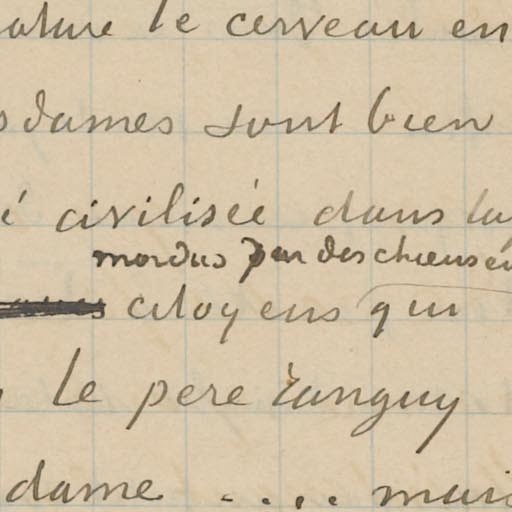 ature le cerveau en
sdames sont bien
é civilisée dans la
mordus par des chiens en
citoyens qui
le pere Tanguy
dame .... mais